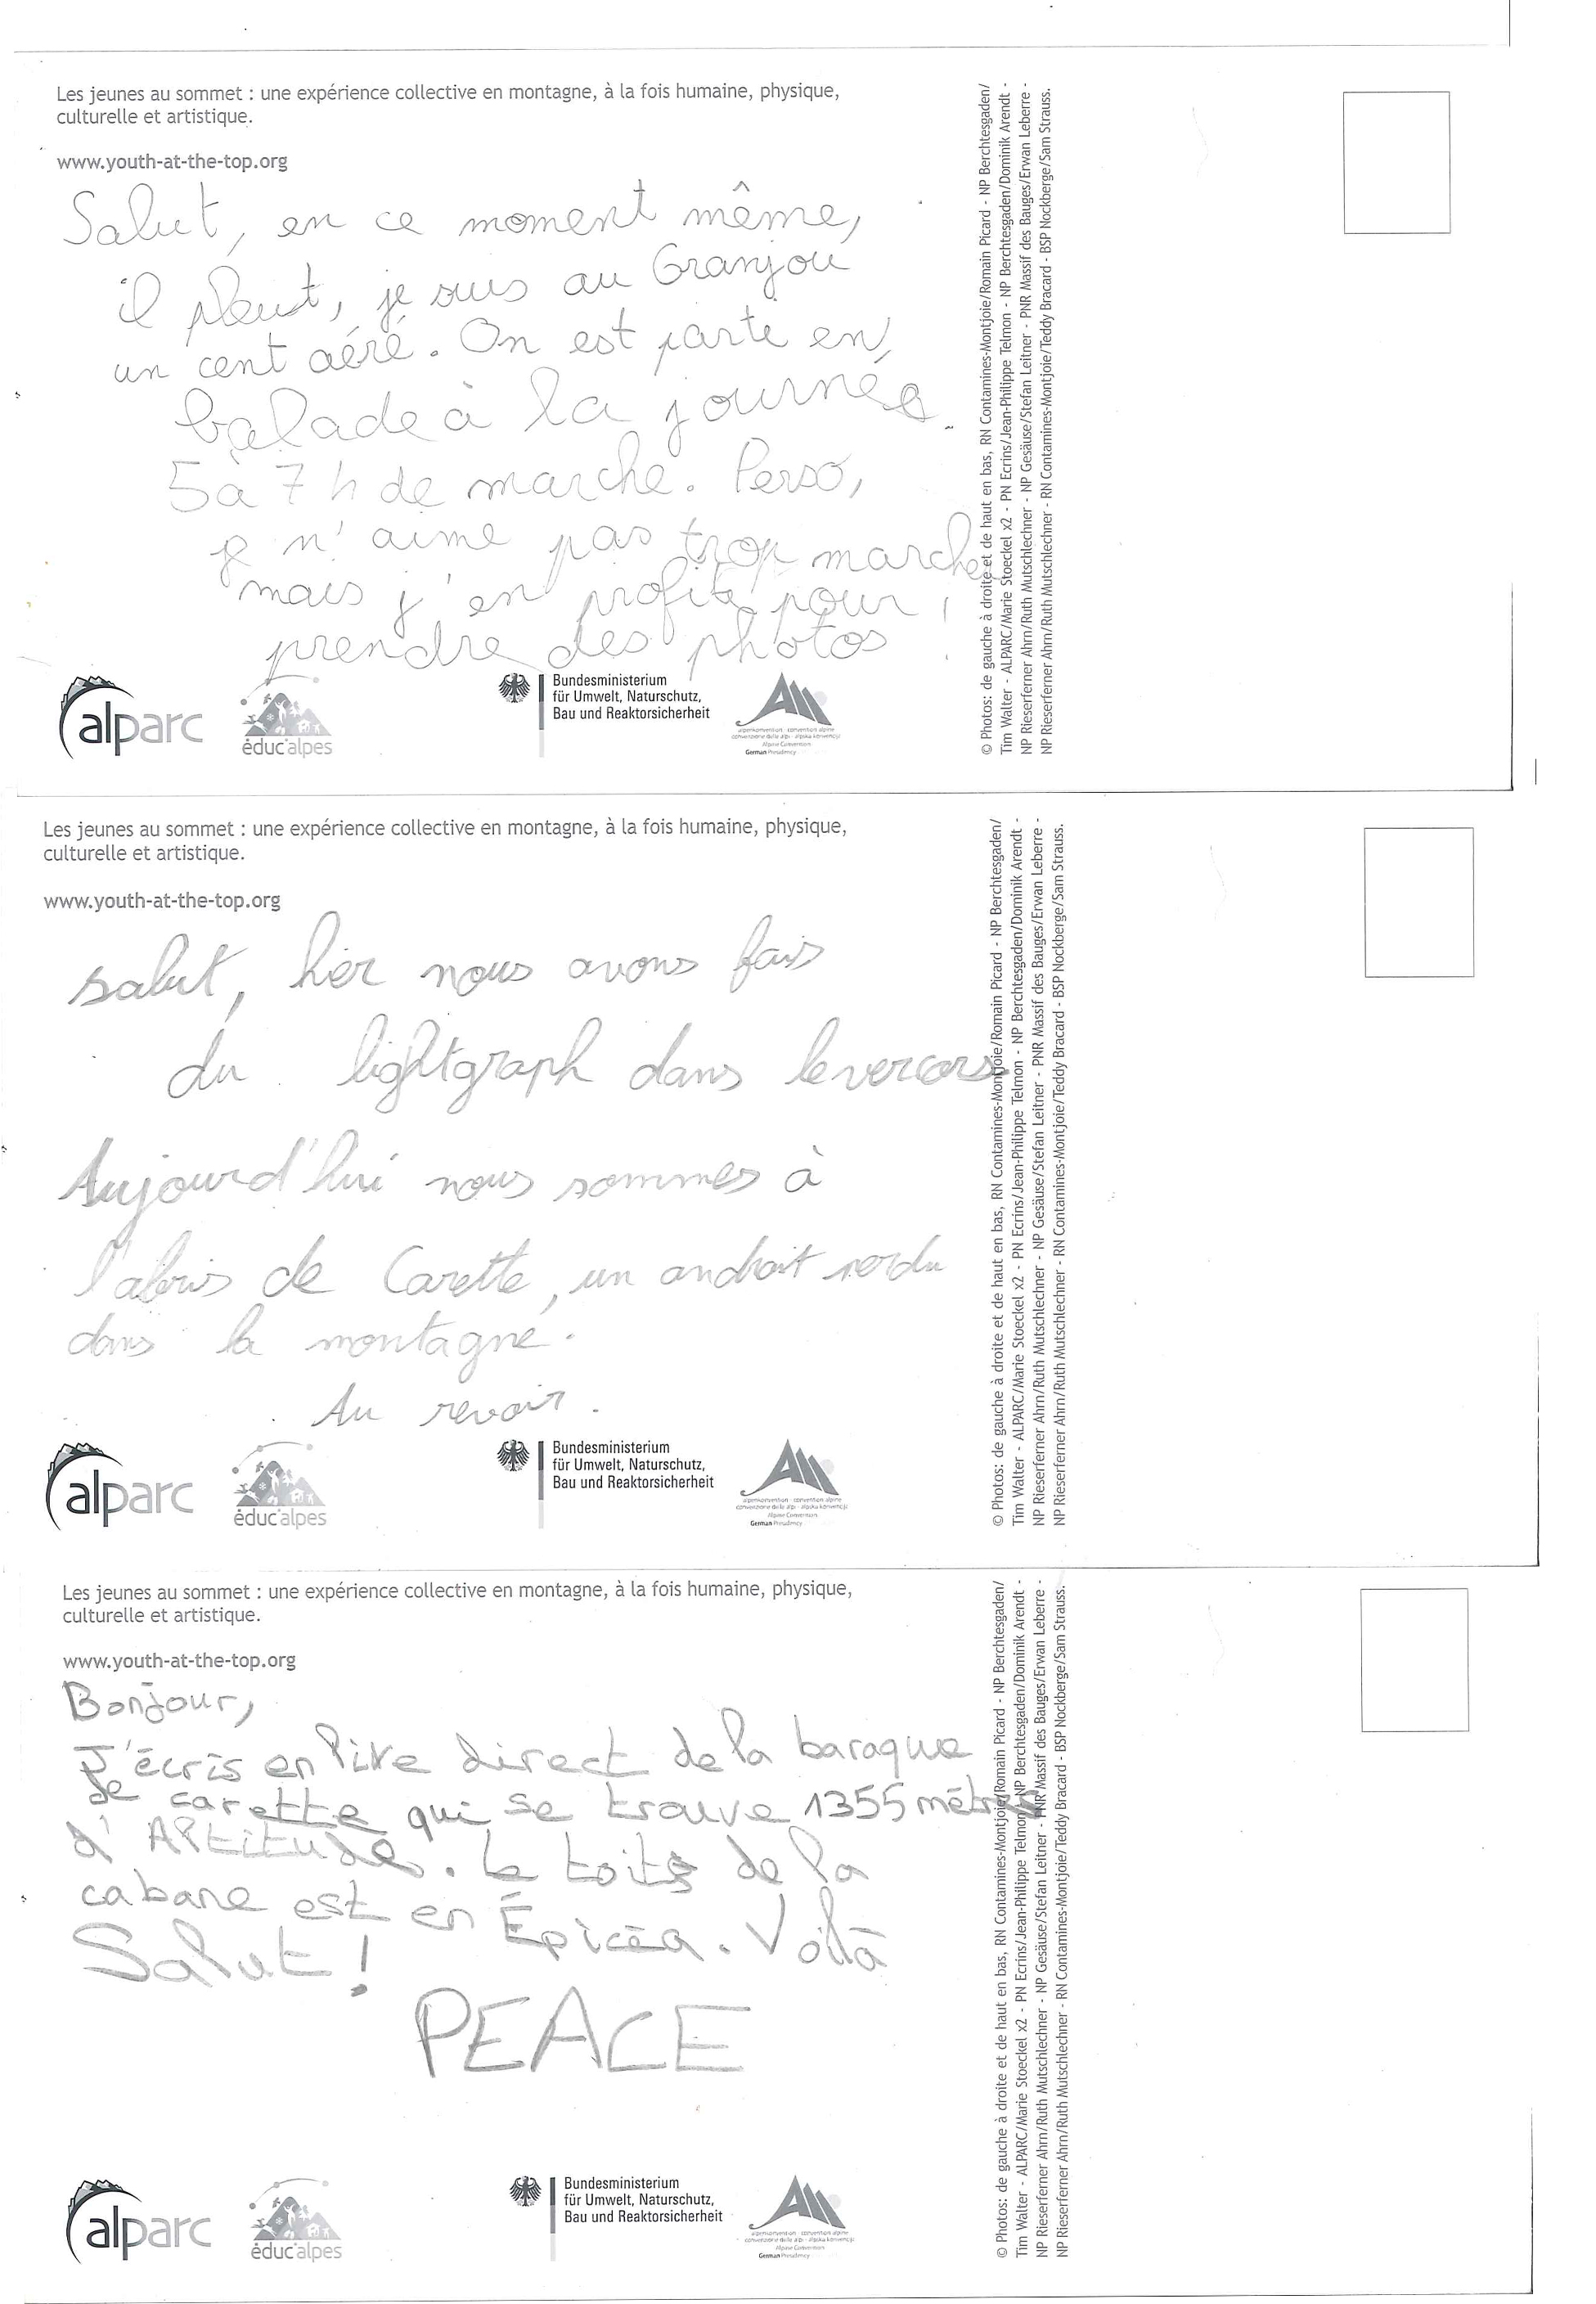 Les jeunes au sommet : une expérience collective en montagne, à la fois humaine, physique,
culturelle et artistique.
www.youth-at-the-top.org
Salut, en ce moment même,
il pleut, je suis au Granjou
un cent aéré. On est parte en
balade à la journée.
5 à 7 h de marche. Perso,
je n'aime pas trop marcher
mais j'en profite pour
prendre des photos !
alparc
éduc'alpes
Bundesministerium
für Umwelt, Naturschutz,
Bau und Reaktorsicherheit
alpenkonvention · convention alpine
convenzione delle alpi · alpska konvencija
Alpine Convention
German Presidency
© Photos: de gauche à droite et de haut en bas, RN Contamines-Montjoie/Romain Picard - NP Berchtesgaden/
Tim Walter - ALPARC/Marie Stoeckel x2 - PN Ecrins/Jean-Philippe Telmon - NP Berchtesgaden/Dominik Arendt -
NP Rieserferner Ahrn/Ruth Mutschlechner - NP Gesäuse/Stefan Leitner - PNR Massif des Bauges/Erwan Leberre -
NP Rieserferner Ahrn/Ruth Mutschlechner - RN Contamines-Montjoie/Teddy Bracard - BSP Nockberge/Sam Strauss.
Les jeunes au sommet : une expérience collective en montagne, à la fois humaine, physique,
culturelle et artistique.
www.youth-at-the-top.org
salut, hier nous avons fais
du lightgraph dans levercors
Aujourd'hui nous sommes à
l'abris de Carette, un androit perdu
dans la montagne.
Au revoir.
alparc
éduc'alpes
Bundesministerium
für Umwelt, Naturschutz,
Bau und Reaktorsicherheit
alpenkonvention · convention alpine
convenzione delle alpi · alpska konvencija
Alpine Convention
German Presidency
© Photos: de gauche à droite et de haut en bas, RN Contamines-Montjoie/Romain Picard - NP Berchtesgaden/
Tim Walter - ALPARC/Marie Stoeckel x2 - PN Ecrins/Jean-Philippe Telmon - NP Berchtesgaden/Dominik Arendt -
NP Rieserferner Ahrn/Ruth Mutschlechner - NP Gesäuse/Stefan Leitner - PNR Massif des Bauges/Erwan Leberre -
NP Rieserferner Ahrn/Ruth Mutschlechner - RN Contamines-Montjoie/Teddy Bracard - BSP Nockberge/Sam Strauss.
Les jeunes au sommet : une expérience collective en montagne, à la fois humaine, physique,
culturelle et artistique.
www.youth-at-the-top.org
Bonjour,
J'écris en live direct de la baraque
de carette qui se trouve 1355 mètres
d'Altitude. Le toits de la
cabane est en Épicéa. Voilà
Salut !
PEACE
alparc
éduc'alpes
Bundesministerium
für Umwelt, Naturschutz,
Bau und Reaktorsicherheit
alpenkonvention · convention alpine
convenzione delle alpi · alpska konvencija
Alpine Convention
German Presidency
© Photos: de gauche à droite et de haut en bas, RN Contamines-Montjoie/Romain Picard - NP Berchtesgaden/
Tim Walter - ALPARC/Marie Stoeckel x2 - PN Ecrins/Jean-Philippe Telmon - NP Berchtesgaden/Dominik Arendt -
NP Rieserferner Ahrn/Ruth Mutschlechner - NP Gesäuse/Stefan Leitner - PNR Massif des Bauges/Erwan Leberre -
NP Rieserferner Ahrn/Ruth Mutschlechner - RN Contamines-Montjoie/Teddy Bracard - BSP Nockberge/Sam Strauss.